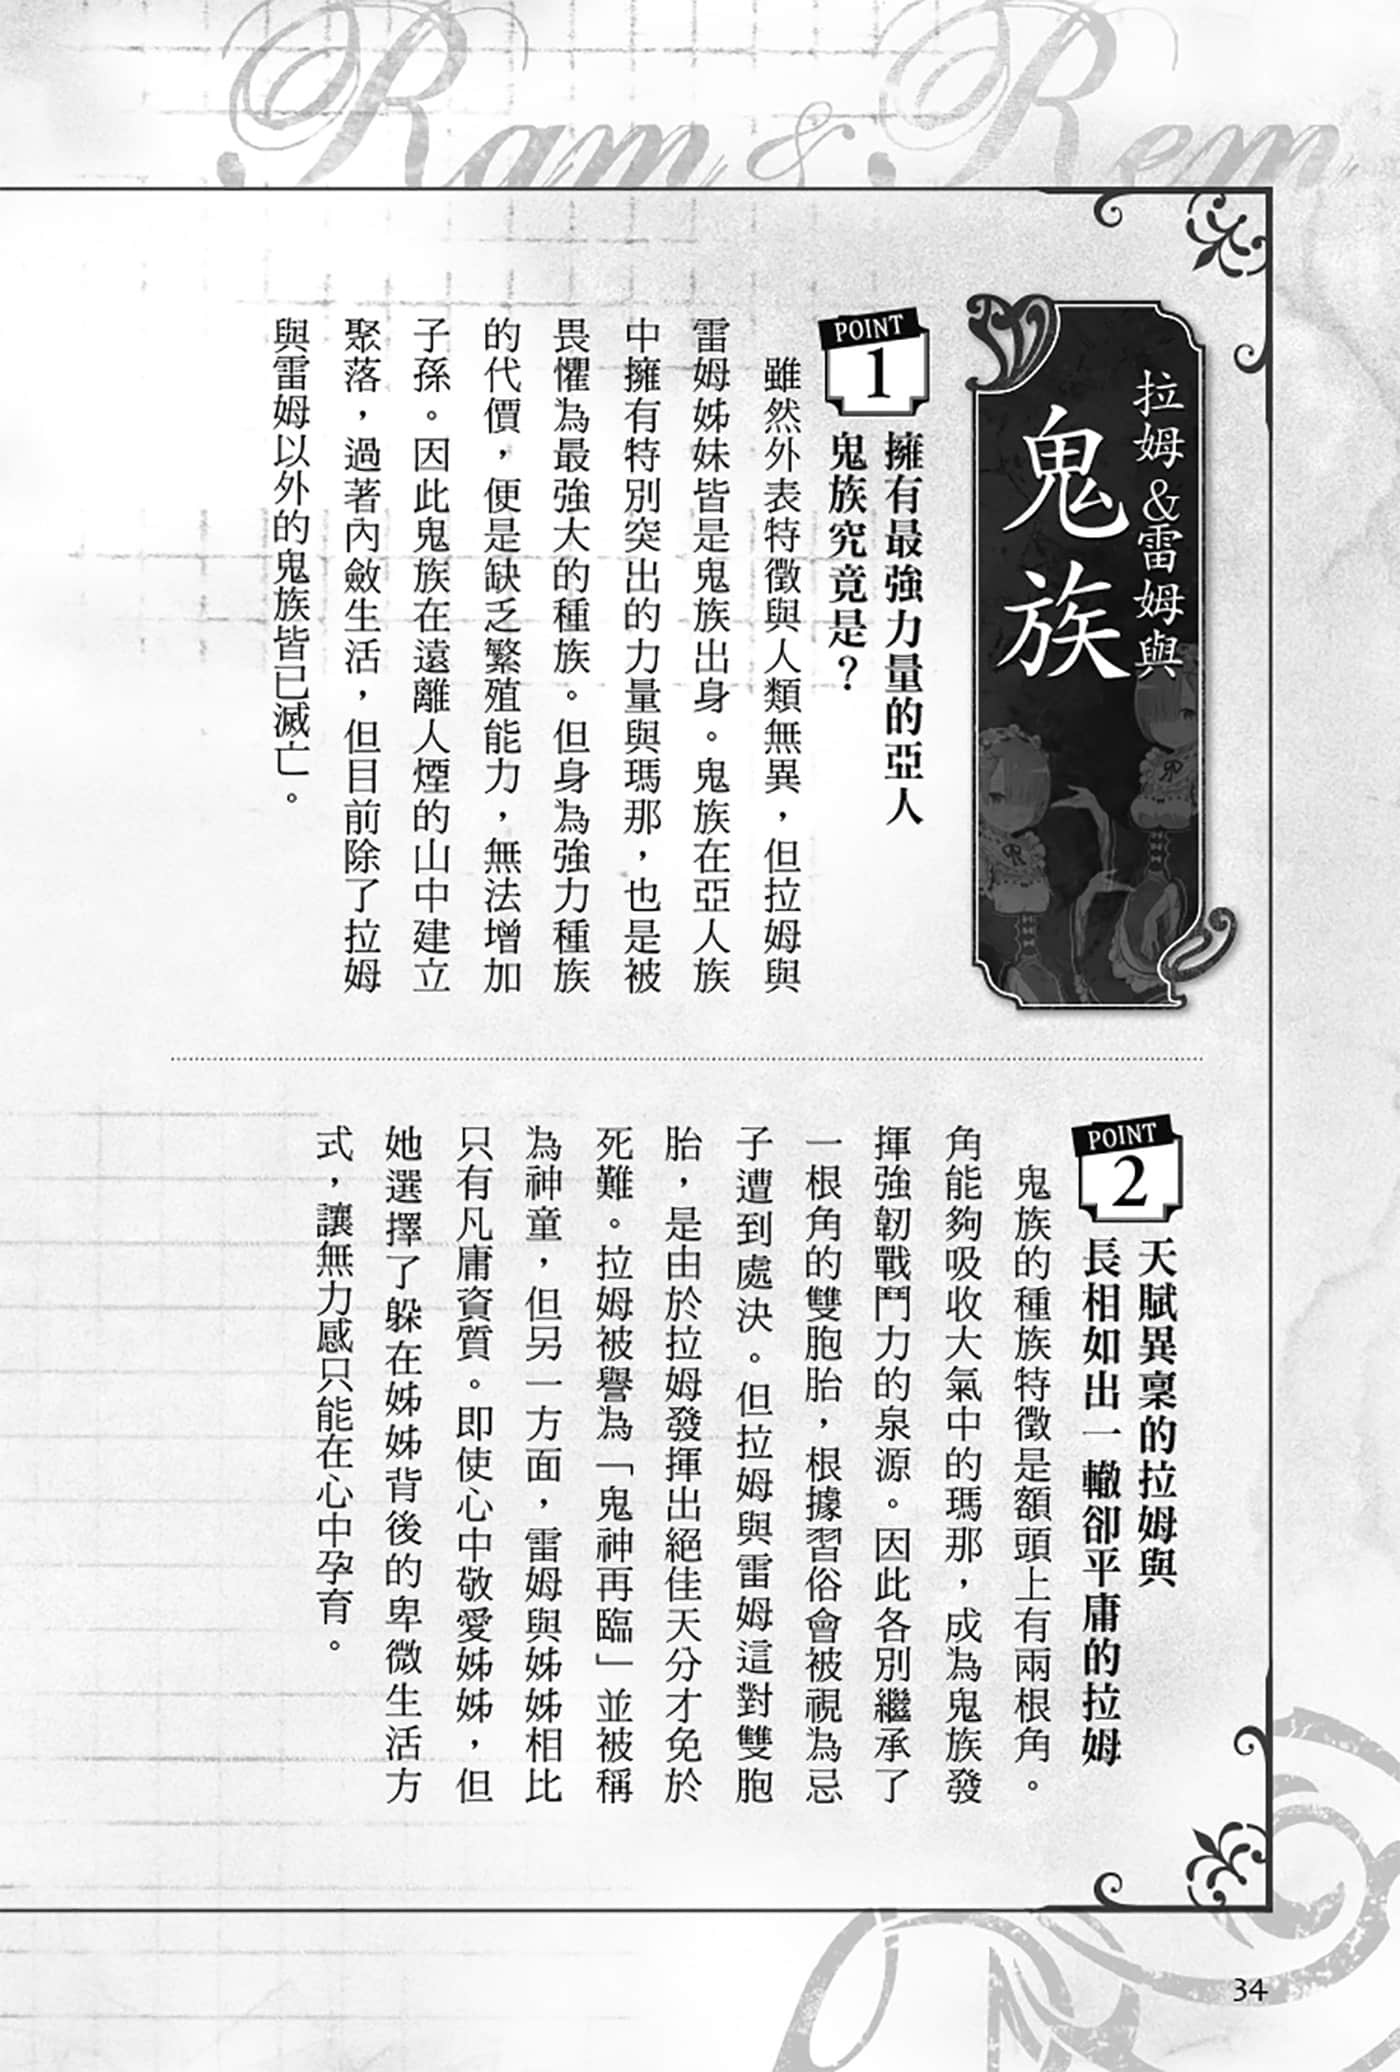 Ram & Rem
拉姆&雷姆與
鬼族
POINT
1
擁有最強力量的亞人
鬼族究竟是？
雖然外表特徵與人類無異，但拉姆與
雷姆姊妹皆是鬼族出身。鬼族在亞人族
中擁有特別突出的力量與瑪那，也是被
畏懼為最強大的種族。但身為強力種族
的代價，便是缺乏繁殖能力，無法增加
子孫。因此鬼族在遠離人煙的山中建立
聚落，過著內斂生活，但目前除了拉姆
與雷姆以外的鬼族皆已滅亡。
POINT
2
天賦異稟的拉姆與
長相如出一轍卻平庸的拉姆
鬼族的種族特徵是額頭上有兩根角。
角能夠吸收大氣中的瑪那，成為鬼族發
揮強韌戰鬥力的泉源。因此各別繼承了
一根角的雙胞胎，根據習俗會被視為忌
子遭到處決。但拉姆與雷姆這對雙胞
胎，是由於拉姆發揮出絕佳天分才免於
死難。拉姆被譽為「鬼神再臨」並被稱
為神童，但另一方面，雷姆與姊姊相比
只有凡庸資質。即使心中敬愛姊姊，但
她選擇了躲在姊姊背後的卑微生活方
式，讓無力感只能在心中孕育。
34